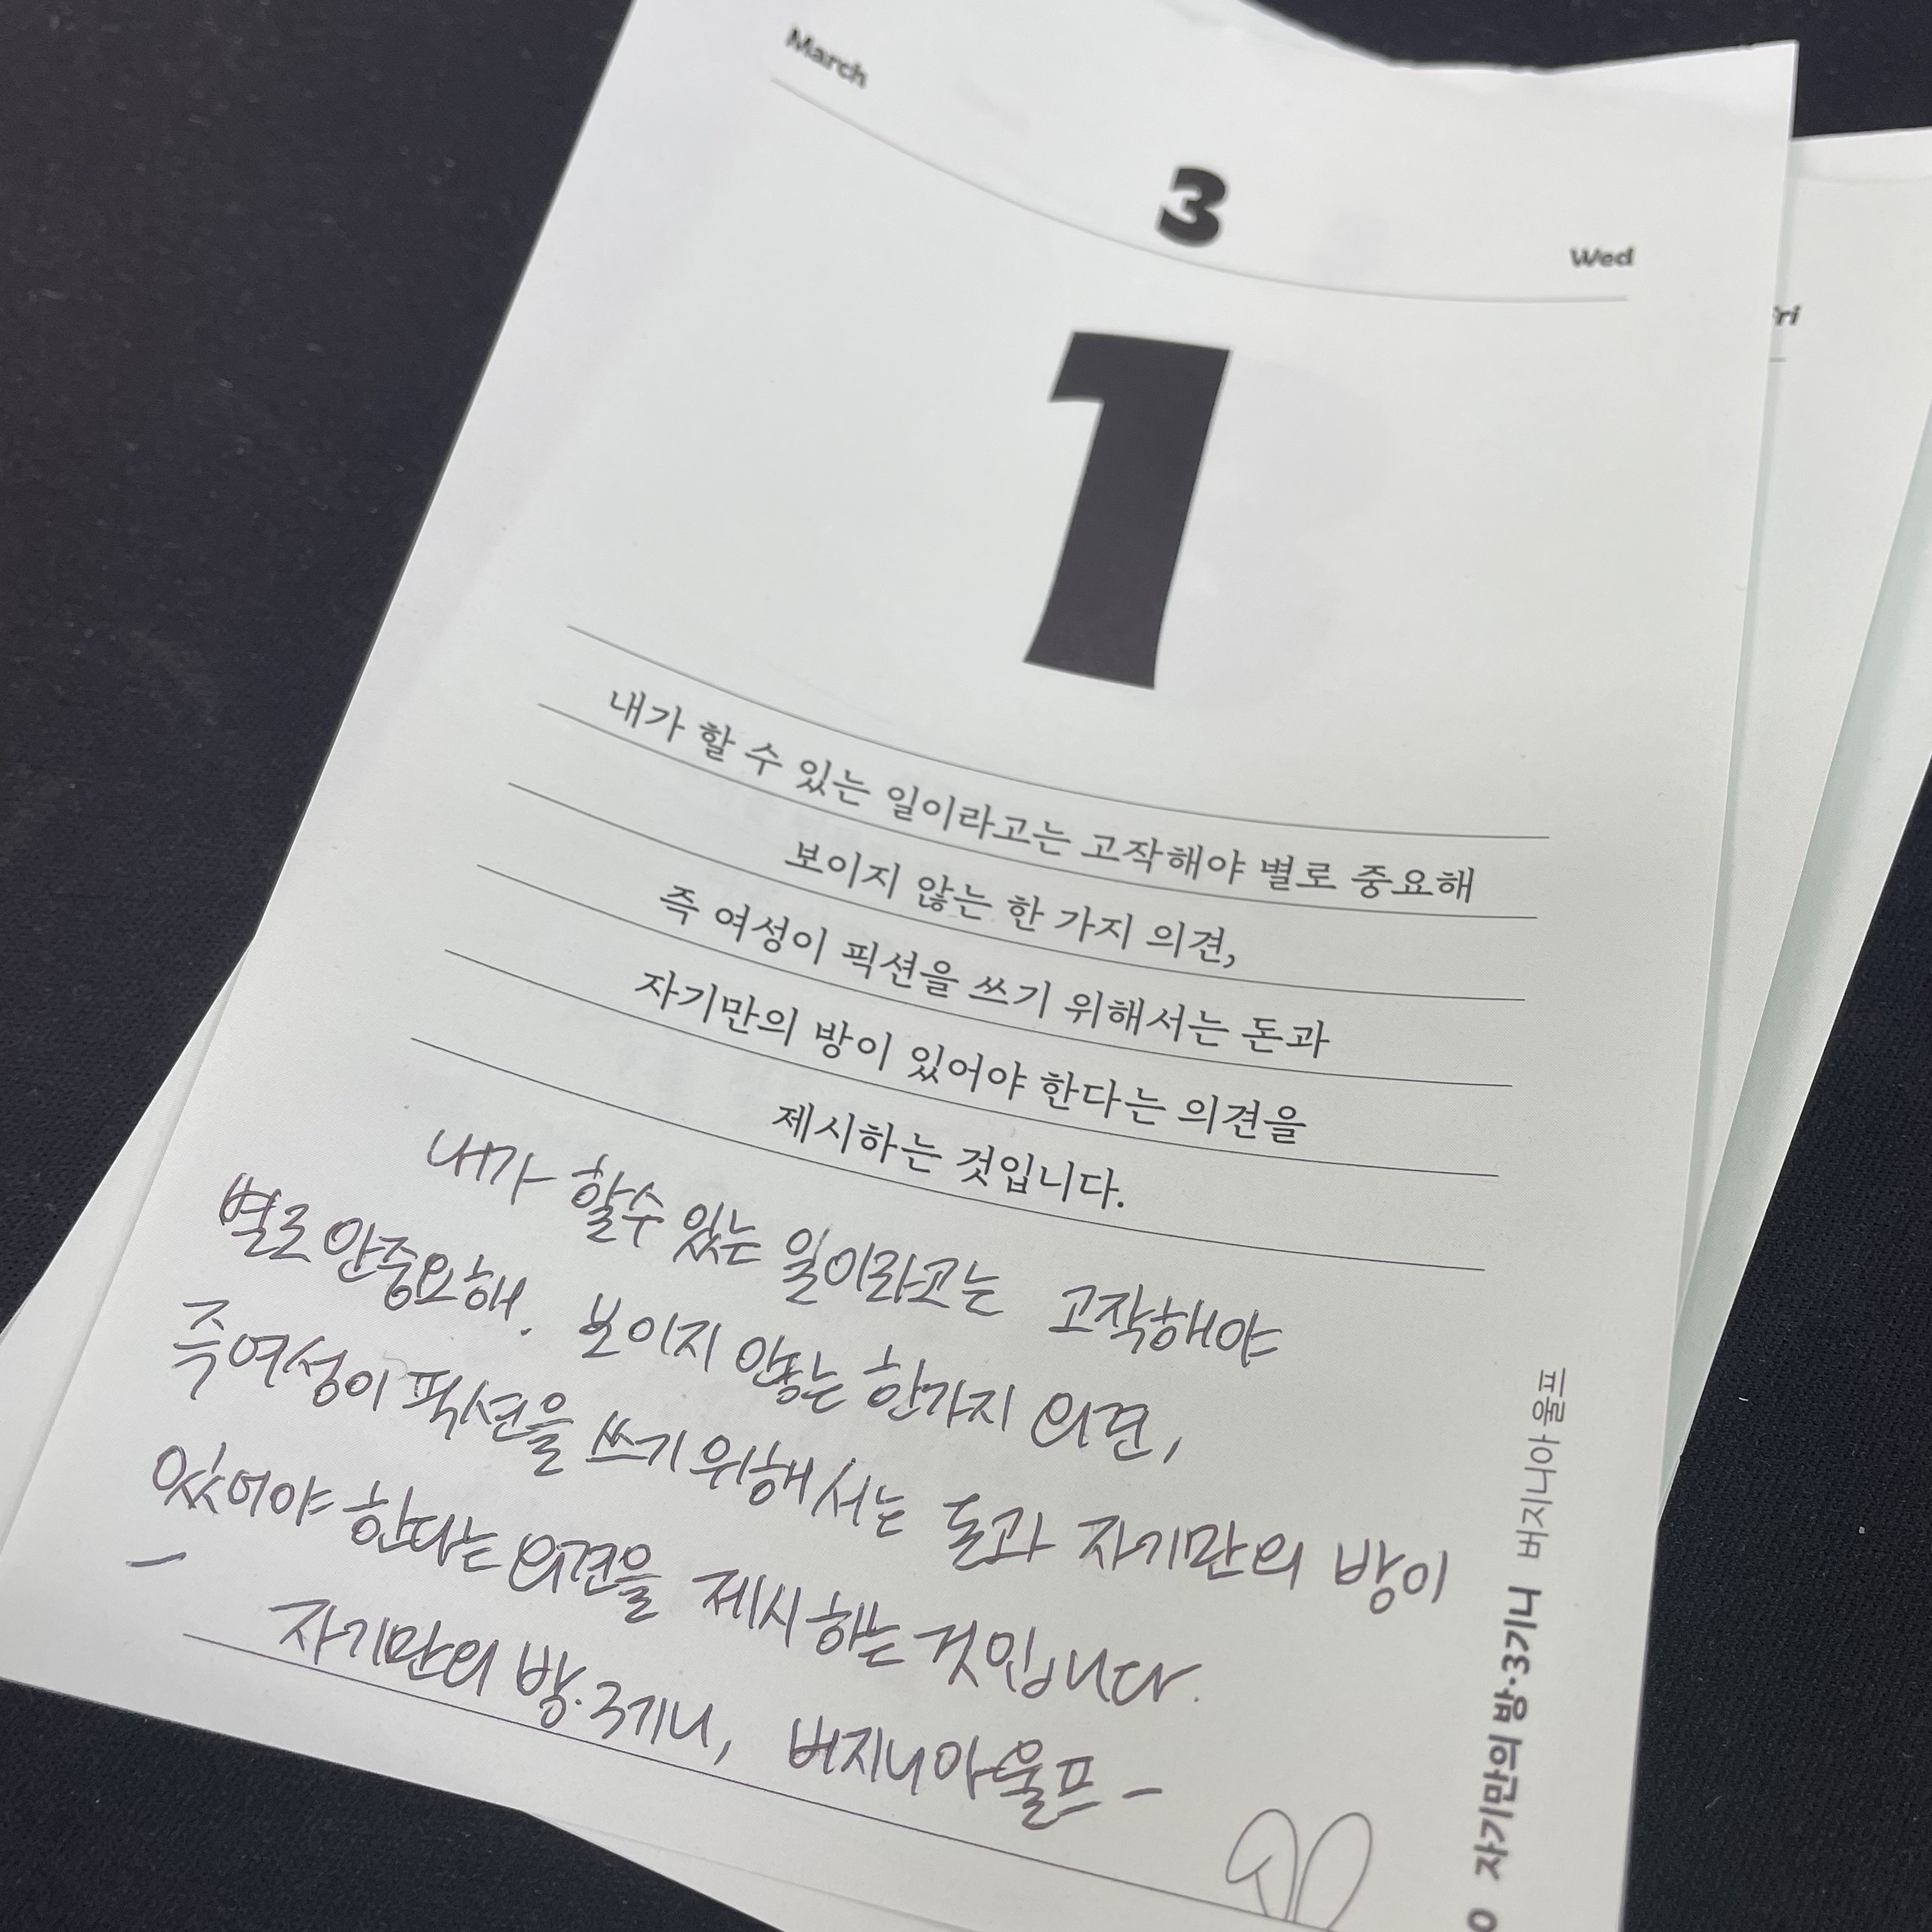 March
3
Wed
1
내가 할 수 있는 일이라고는 고작해야 별로 중요해
보이지 않는 한 가지 의견,
즉 여성이 픽션을 쓰기 위해서는 돈과
자기만의 방이 있어야 한다는 의견을
제시하는 것입니다.
내가 할수 있는 일이라고는 고작해야
별로 안중요해. 보이지 않는 한가지 의견,
즉여성이 픽션을 쓰기 위해서는 돈과 자기만의 방이
있어야 한다는 의견을 제시하는 것입니다.
- 자기만의 방·3기니, 버지니아울프 -
자기만의 방·3기니 버지니아 울프